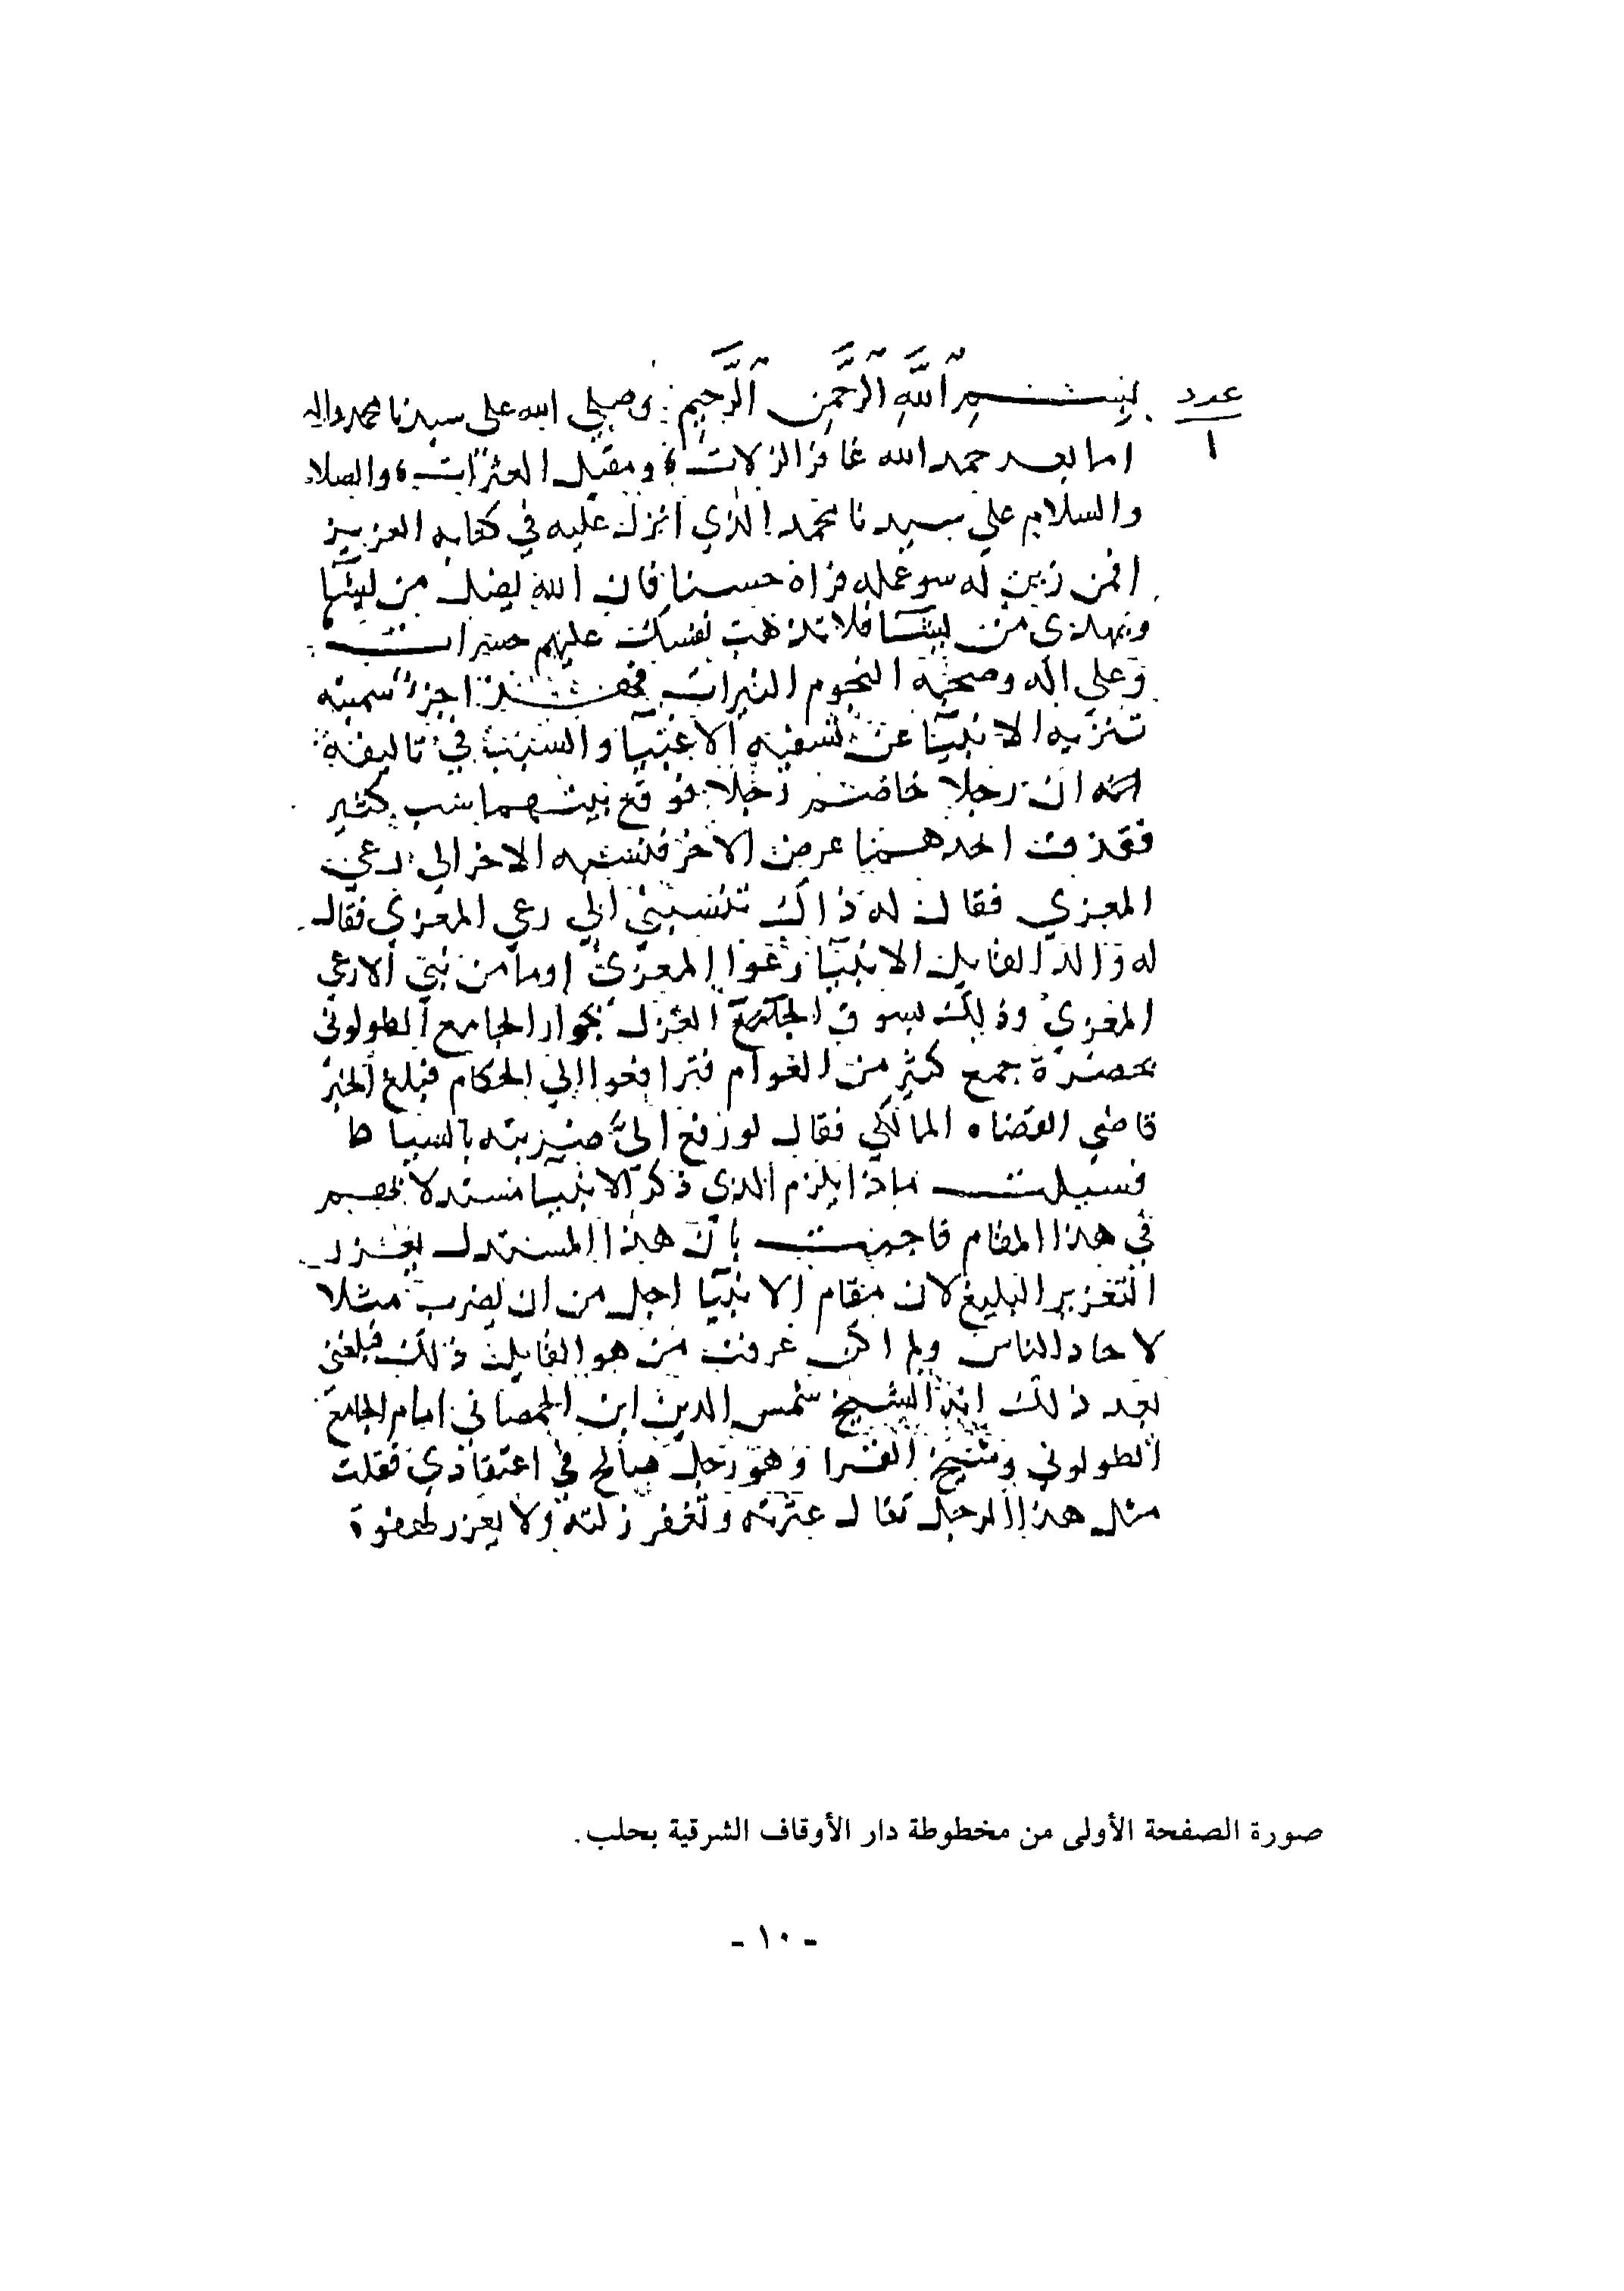 عدد
١
بسم الله الرحمن الرحيم وصلي الله على سيدنا محمد واله
اما بعد حمد الله غافر الزلات ومقيل العثرات والصلاة
والسلام علي سيدنا محمد الذي انزل عليه في كتابه العزيز
افمن زين له سو عمله فراه حسنا فان الله يضل من يشا
ويهدي من يشا فلا تذهب نفسك عليهم حسرات
وعلي اله وصحبه النجوم النيرات فهذا جزء سميته
تنزيه الانبيا عن تسفيه الاغبيا والسبب في تاليفه
انه ان رجلا خاصم رجلا فوقع بينهما سب كثير
فقذف احدهما عرض الاخر فنسبه الاخر الي رعي
المعزي فقال له ذاك تنسبني الي رعي المعزي فقال
له والد القايل الانبيا رعوا المعزي اوما من نبي الا رعي
المعزي وذلك بسوق الغزل بجوار الجامع الطولوني
بحضرة جمع كثير من العوام فترافعوا الي الحكام فبلغ الخبر
قاضي القضاه المالكي فقال لو رفع الي ضربته بالسياط
فسيلت ماذا يلزم الذي ذكر الانبيا مستدلا بهم
في هذا المقام فاجبت بان هذا المستدل يعزر
التعزير البليغ لان مقام الانبيا اجل من ان يضرب مثلا
لاحاد الناس ولم اكن عرفت من هو القايل ذلك فبلغني
بعد ذلك انه الشيخ شمس الدين ابن الحمصاني امام الجامع
الطولوني وشيخ القرا وهو رجل صالح في اعتقادي فقلت
مثل هذا الرجل تقال عثرته وتغفر زلته ولا يعزر لهفوة
صورة الصفحة الأولى من مخطوطة دار الأوقاف الشرقية بحلب.
- ١٠ -